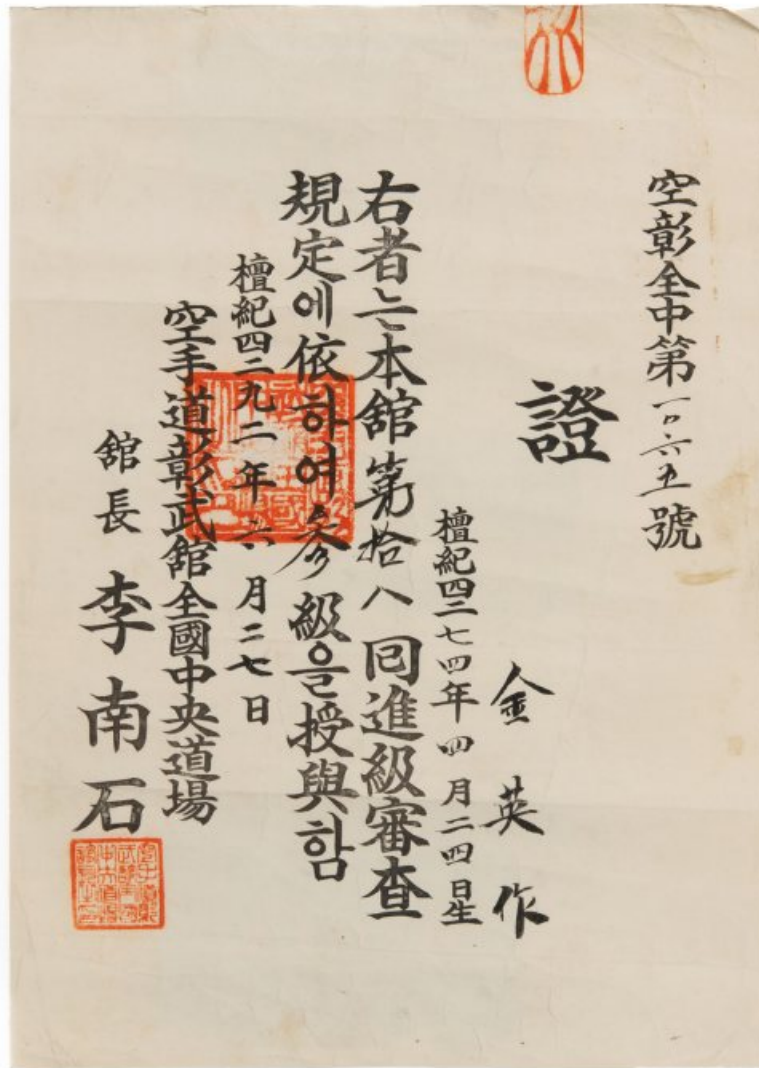 空彰全中第一〇六五號
證
金英作
檀紀四二七四年四月二四日生
右者는本舘第拾八回進級審査
規定에依하여參級을授與함
檀紀四二九二年六月二七日
空手道彰武舘全國中央道場
舘長 李南石